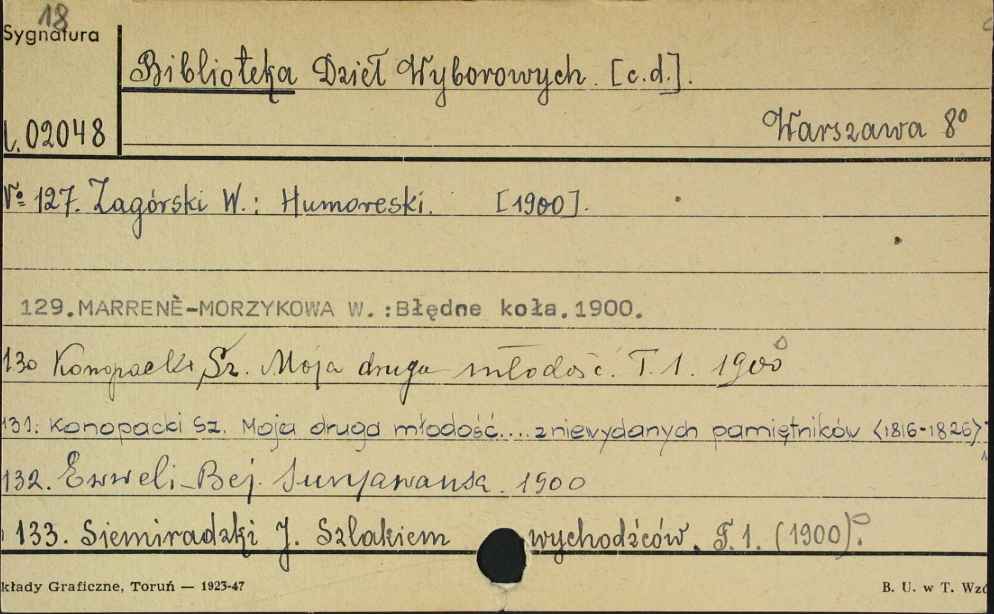 18
Sygnatura
Biblioteka Dzieł Wyborowych. [c.d.].
l. 02048
Warszawa 8°
№ 127. Zagórski W.: Humoreski. [1900].
129. MARRENÈ-MORZYKOWA W.: Błędne koła. 1900.
130 Konopacki Sz. Moja druga młodość. T. 1. 1900
131. Konopacki Sz. Moja druga młodość.... z niewydanych pamiętników <1816-1826>
132. Ewweli-Bej. 1900
133. Siemiradzki J. Szlakiem wychodźców. T. 1. (1900).
kłady Graficzne, Toruń — 1923-47
B. U. w T. Wzó